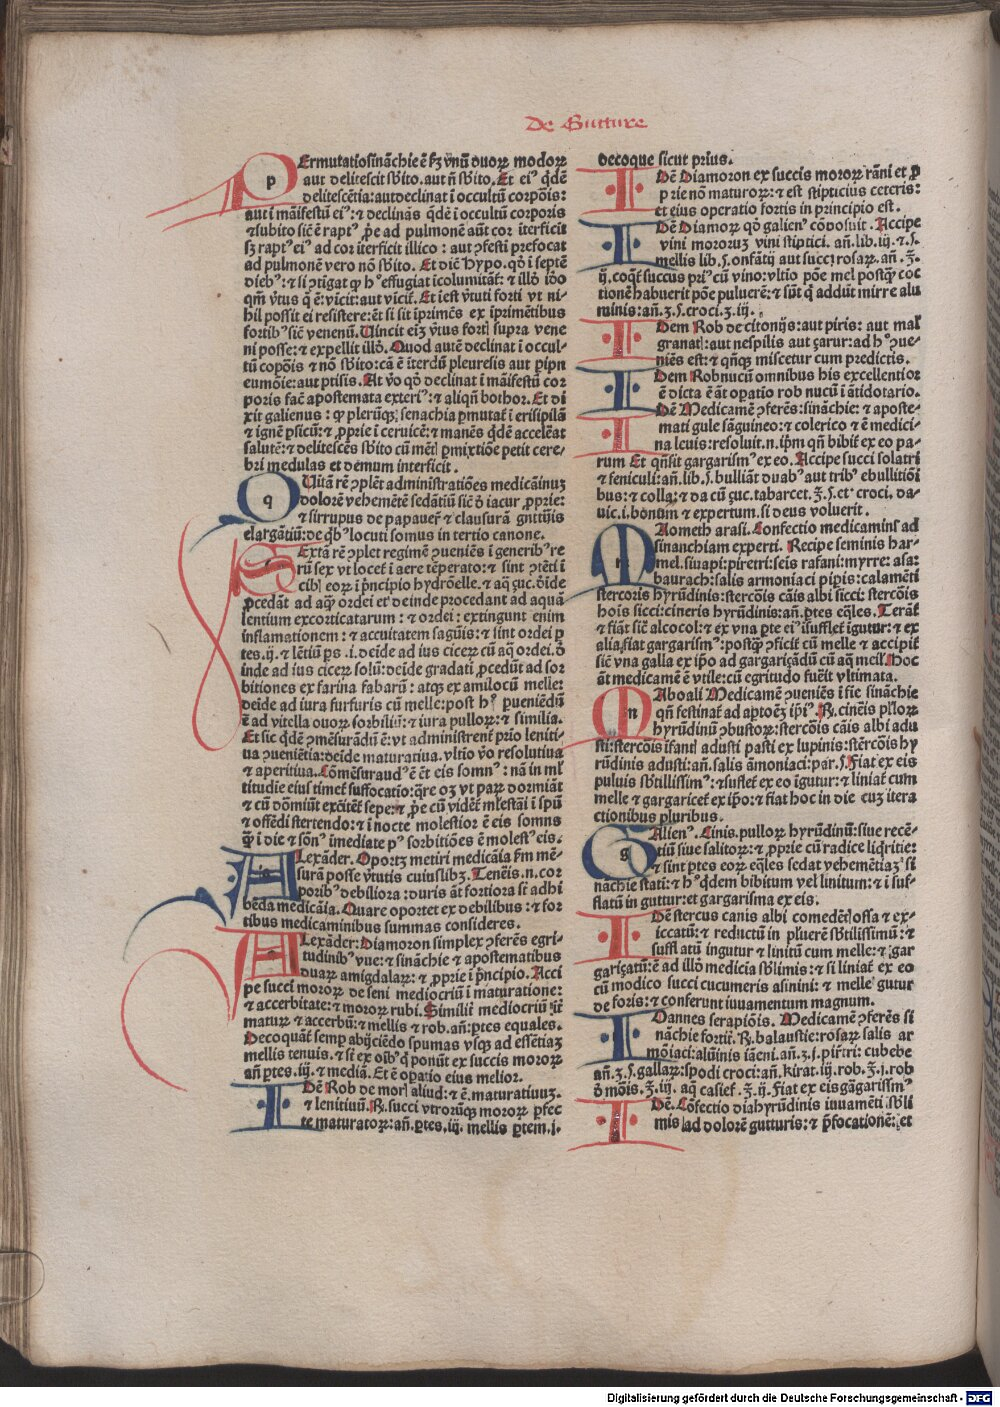 De Gutture
PErmutatio sinãchie ẽ ẜz vnũ duoꝝ modoꝝ
aut delitescit sbito. aut ñ sbito. Et eiꝰ qdẽ
delitescẽtia: aut declinat ĩ occultũ corpõis:
aut ĩ mãifestũ eiꝰ: ⁊ declinãs qdẽ ĩ occultũ corporis
⁊ subito sic ẽ raptꝰ ꝓpe ad pulmonẽ aũt cor iterficit
sz raptꝰ eiꝰ ad cor iterficit illico: aut ꝯfesti prefocat
ad pulmonẽ vero nõ sbito. Et dic̃ hypo. qõ ĩ septẽ
diebꝰ: ⁊ si ꝯtigat ꝙ hꝰ effugiat icolumitat̃: ⁊ illð iõo
qm̃ v̾tus q̃ ẽ: vicit: aut vicit̃. Et iest v̾tuti forti vt ni-
hil possit ei resistere: et̃ si sit ip̾imẽs ex ip̾imẽtibus
fortibꝰ sic̃ venenũ. Uincit eiz v̾tus forƚ supra vene
ni posse: ⁊ expellit illð. Quod autẽ declinat ĩ occul-
tũ corpõis ⁊ nõ sbito: cã ẽ iterdũ pleuresis aut p̾ipn
eumõie: aut ptisis. At v̾o qð declinat ĩ mãifestũ cor
poris fac̃ apostemata exteriꝰ: ⁊ aliqñ bothor. Et di
xit galienus: ꝙ pleruqꝫ senachia ꝑmutat̃ ĩ erisipilã
⁊ ignẽ ꝑsicũ: ⁊ ꝓprie ĩ ceruicẽ: ⁊ manẽs qdẽ accelẽat
salutẽ: ⁊ delitescẽs sbito cũ mẽƚ ꝑmixtiõe petit cere-
bri medulas et demum interficit.
QUitã rẽ ꝯplẽt administratiões medicãinuꝫ
dolorẽ vehemẽtẽ sedãtiũ sic̃ ð iacur ꝓprie:
⁊ sirrupus de papauer̃ ⁊ clausurã gnttiis
elargãtiũ: de qbꝰ locuti somus in tertio canone.
SExtã rẽ ꝯplet regimẽ ꝯueniẽs ĩ generibꝰ re
rũ sex vt locet̃ ĩ aere tẽperato: ⁊ sint ꝯtẽti ĩ
cibƚ eoꝝ ĩ p̾ncipio hydrõelle. ⁊ aq̃ çuc. ðide
ꝓcedãt ad aq̃ʒ ordei et deinde procedant ad aquã
lentium excorticatarum: ⁊ ordei: extingunt enim
inflamationem: ⁊ accuitatem sagũis: ⁊ sint ordei p
tes. ij. ⁊ lẽtiũ ps .i. deide ad ius ciceꝝ cũ aq̃ ordei. ð
inde ad ius ciceꝝ solũ: deide gradati ꝓcedũt ad sor
bitiones ex farina fabarũ: atqꝫ ex amilocũ melle:
deide ad iura furfuris cũ melle: post hꝰ pueniẽdũ
ẽ ad vitella ouoꝝ sorbiliũ: ⁊ iura pulloꝝ: ⁊ similia.
Et sic qdẽ ꝯmẽsurãdũ ẽ: vt administrent̃ p̾io leniti-
ua ꝯueniẽtia: deide maturatiua. vltiõ v̾o resolutiua
⁊ aperitiua. Cõmẽsuraud̾ ẽ et̃ eis somnꝰ: nã in mƚ
titudie eius timet̃ suffocatio: q̃re oꝫ vt paꝝ dormiãt
⁊ cũ dõmiũt excitẽt̃ sepe: ⁊ ꝓpe cũ vidẽt̃ mƚestãi ĩ spũ
⁊ offẽdi stertendo: ⁊ ĩ nocte molestior ẽ eis somns
q̃ʒ ĩ die ⁊ sõnꝰ imediate pꝰ sorbitiões ẽ molestꝰ eis.
ALexãder. Oportꝫ metiri medicãia ẜm mẽ-
surã posse v̾tutis cuiuslibꝫ. Tenẽis .n. cor
poribꝰ debiliora: duris ãt fortiora si adhi
bẽda medicãia. Quare oportet ex debilibus: ⁊ for
tibus medicaminibus summas consideres.
ALexãder: Diamoron simplex ꝯferẽs egri-
tudinibꝰ vue: ⁊ sinãchie ⁊ apostematibus
duaꝝ amigdalaꝝ: ⁊ ꝓprie ĩ p̾ncipio. Acci
pe succi moroꝝ de seni mediocriũ ĩ maturatione:
⁊ accerbitate: ⁊ moroꝝ rubi. Similit̃ mediocriũ iit̃
matuꝝ ⁊ accerbũ: ⁊ mellis ⁊ rob. añ: ꝑtes equales.
Decoquãt̃ semꝑ abijciẽdo spumas vsqꝫ ad essẽtiaꝫ
mellis tenuis. ⁊ si ex oibꝰ q ponũt ex succis moroꝝ
añ ꝑtes. iij. ⁊ mediã. Et ẽ oꝑatio eius melior.
IDẽ Rob de morƚ aliud: ⁊ ẽ maturatiuuꝫ.
⁊ lenitiuũ. ℞. succi vtroruqꝫ moroꝝ ꝑfec
te maturatoꝝ: añ. ꝑtes. iij. mellis ꝑtem .i.
decoque sicut prius.
IDẽ Diamoron ex succis moroꝝ rãni et ꝓ
prie nõ maturoꝝ: ⁊ est stipticius ceteris:
et eius operatio fortis in principio est.
IDẽ Diamoꝝ qð galienꝰ cõposuit. Accipe
vini mororuꝫ vini stiptici. añ. lib. iij. ⁊ .ẜ.
mellis lib. ẜ. onfãtij aut succi rosaꝝ. añ. ℥.
ij. coq̃t̃ succus priꝰ cũ vino: vltio põe mel postq̃ʒ coc
tionẽ habuerit põe puluerẽ: ⁊ sũt q̃ addũt mirre alu
minis: añ. ʒ. ẜ. croci. ʒ. iij.
IDem Rob de citonijs: aut piris: aut maƚ
granatƚ: aut nespilis aut çarur: ad hꝰ ꝯue-
niẽs est: ⁊ qñqꝫ miscetur cum predictis.
IDem Rob nucũ omnibus his excellentior
ẽ dicta ẽ ãt opatio rob nucũ ĩ ãtidotario.
IDẽ Medicamẽ ꝯferẽs: sinãchie: ⁊ aposte-
mati gule sãguineo: ⁊ colerico ⁊ ẽ medici-
na leuis: resoluit .n. ip̃m qñ bibit̃ ex eo pa-
rum Et qñ sit gargarismꝰ ex eo. Accipe succi solatri
⁊ feniculi: añ. lib. ẜ. bulliãt duabꝰ aut tribꝰ ebullitiõi
bus: ⁊ colla: ⁊ da cũ çuc. tabarcet. ℥. ẜ. etꝰ croci. da-
uic. i. bonum ⁊ expertum. si deus voluerit.
MAometh arasi. Confectio medicaminƚ ad
sinanchiam experti. Recipe seminis har-
mel. sinapi: piretri: seis rafani: myrre: asa:
baurach: salis armoniaci pipis: calamẽti
stercoris hyrũdinis: stercõis cãis albi sicci: stercõis
hois sicci: cineris hyrũdinis: añ. ꝑtes eq̃les. Terãt̃
⁊ fiãt sic̃ alcocol: ⁊ ex vna ꝑte eiꝰ isufflet̃ igutur: ⁊ ex
alia fiat gargarismꝰ: postq̃ʒ ꝯficit̃ cũ melle ⁊ accipit̃
sic̃ vna galla ex ip̃o ad gargariçãdũ cũ aq̃ melƚ. Hoc
ãt medicamẽ ẽ vtile: cũ egritudo fuẽit vltimata.
MAboali Medicamẽ ꝯueniẽs ĩ fie sinãchie
qñ festinat̃ ad aꝑtõeꝫ ip̃iꝰ. ℞. cinẽis pƚloꝝ
hyrũdinũ ꝯbustoꝝ: stercõis cãis albi adu
sti: stercõis ifantƚ adusti pasti ex lupinis: stẽrcõis hy
rũdinis adusti: añ. salis ãmoniaci: par. ẜ. Fiat ex eis
puluis sbtilissimꝰ: ⁊ suflet̃ ex eo igutur: ⁊ liniat̃ cum
melle ⁊ gargaricet̃ ex ip̃o: ⁊ fiat hoc in die cuꝫ itera
ctionibus pluribus.
GAlienꝰ. Cinis. pulloꝝ hyrũdinũ: siue recẽ-
tiũ siue salitoꝝ: ⁊ ꝓprie cũ radice liq̃ritie:
⁊ sint ꝑtes eoꝝ eq̃les sedat vehemẽtiaꝫ si
nãchie stati: ⁊ hꝰ qdem bibitum vel linitum: ⁊ ĩ suf-
flatũ in guttur: et gargarisma ex eis.
IDẽ stercus canis albi comedẽtƚ ossa ⁊ ex-
iccatũ: ⁊ reductũ in pƚuerẽ sbtilissimũ: ⁊
suffl atũ ingutur ⁊ linitũ cum melle: ⁊ gar
gariçatũ: ẽ ad illð medicia sblimis: ⁊ si liniat̃ ex eo
cũ modico succi cucumeris asinini: ⁊ melle gutur
de foris: ⁊ conferunt iuuamentum magnum.
IOannes serapiõis. Medicamẽ ꝯferẽs si
nãchie fortit̃. ℞. balaustie: rosaꝝ salis ar
mõiaci: alũinis iãeni. añ. ʒ. ẜ. pir̃tri: cubebe
añ. ʒ. ẜ. gallaꝝ: spodi croci: añ. kirat. iij. rob. ℥. i. rob
ð mõis. ℥. iij. aq̃ casief. ℥. ij. Fiat ex eis gãgarismꝰ
IDẽ. Cõfectio diahyrũdinis iuuamẽti sbli
mis ad dolorẽ gutturis: ⁊ p̾focationẽ: et
Digitalisierung gefördert durch die Deutsche Forschungsgemeinschaft - DFG